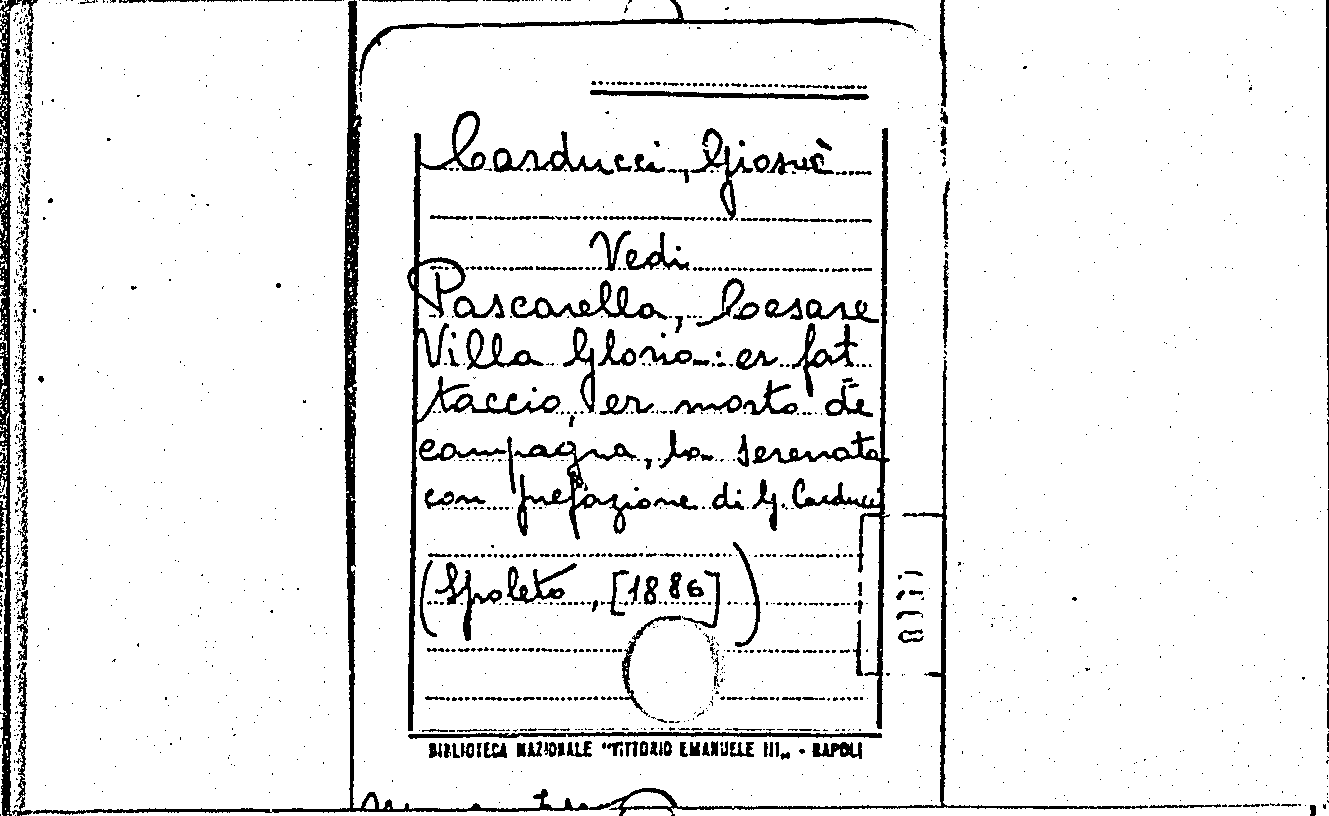 Carducci, Giosuè
Vedi
Pascarella, Cesare
Villa Gloria: er fat
taccio, er morto de
campagna, la serenata
con prefazione di G. Carducci
(Spoleto, [1886])
BIBLIOTECA NAZIONALE "VITTORIO EMANUELE III„ - NAPOLI